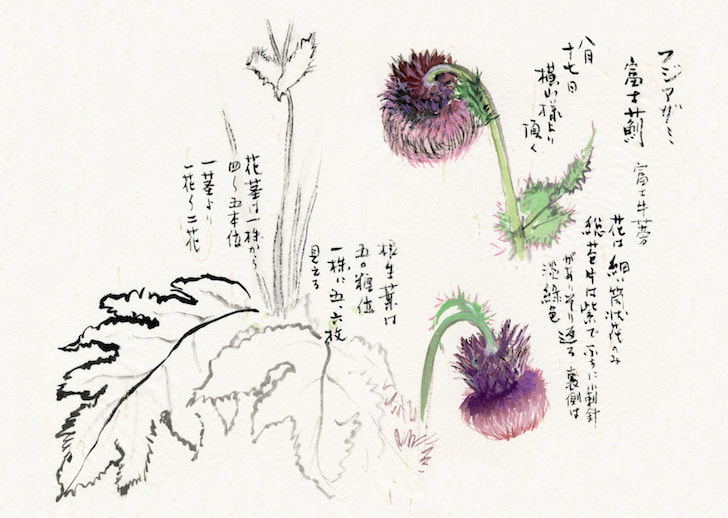 フジアザミ
富士薊
富士牛蒡
八月
十七日
横山様より
頂く
花は細い筒状花のみ
総苞片は紫でふちに小刺針
がありそり返る 裏側は
淡緑色
根生葉は
五〇糎位
一株に五、六枚
見える
花茎は一株から
四〜五本位
一茎より
一花〜二花